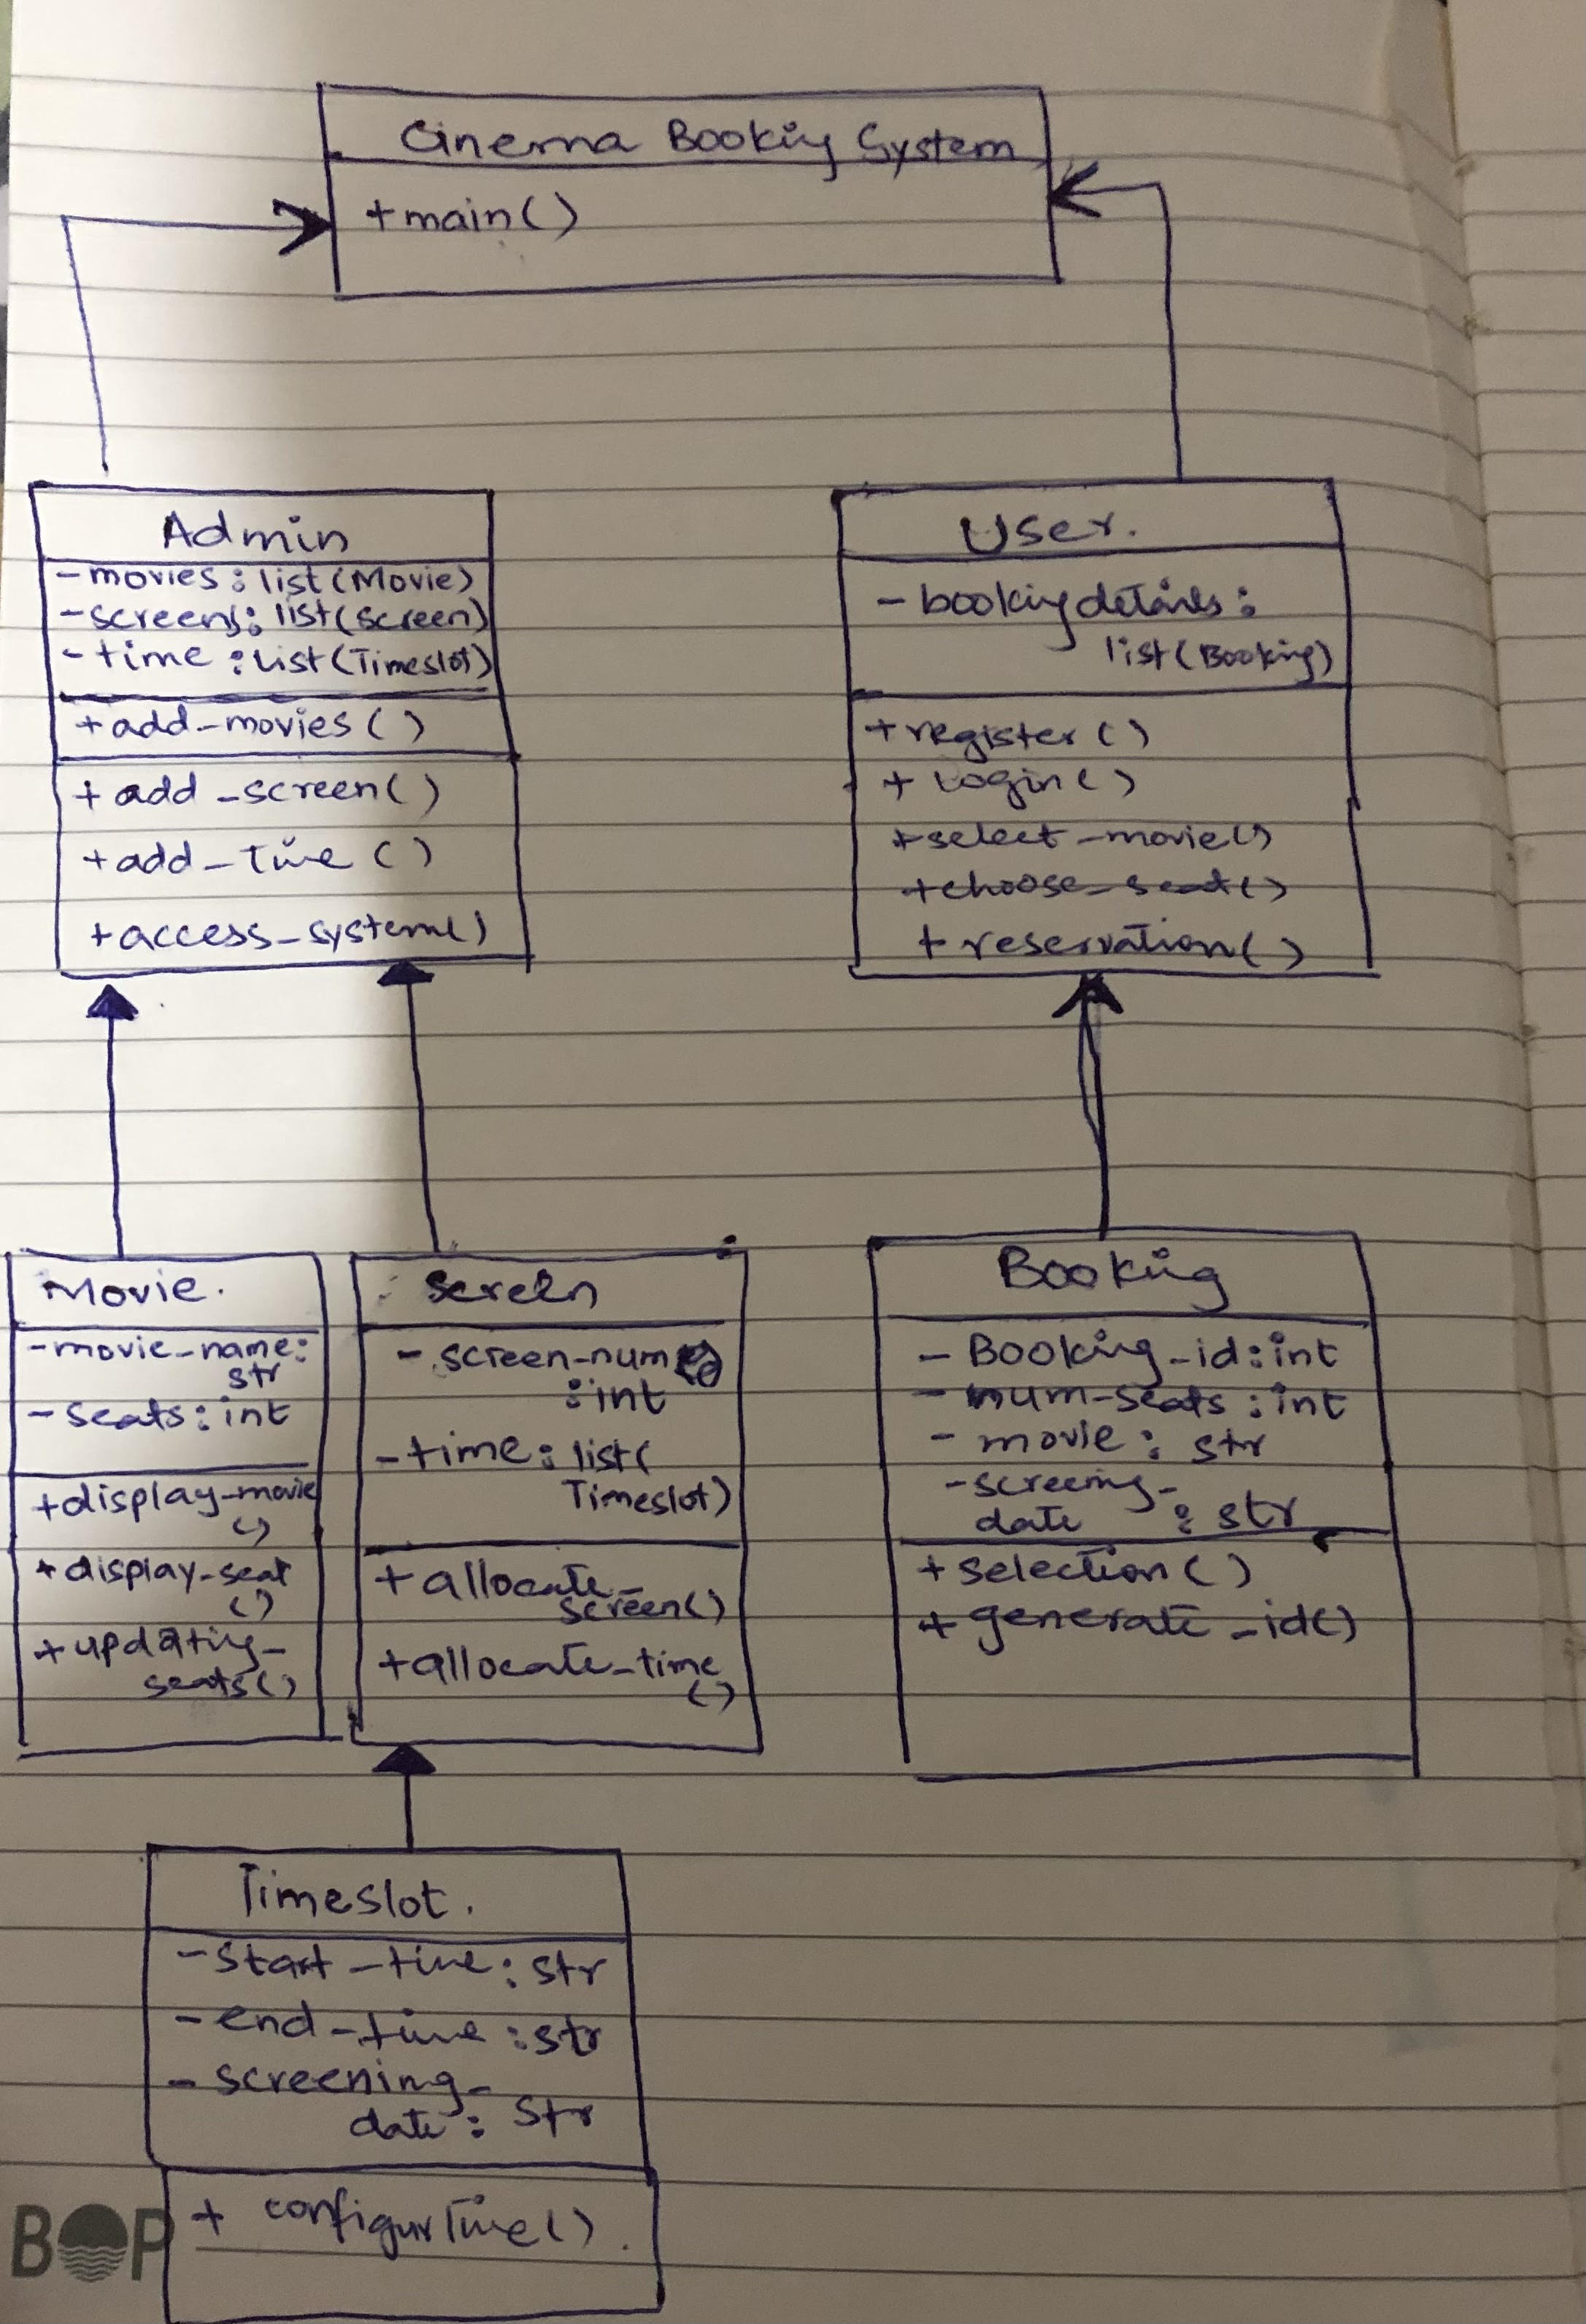 Cinema Booking System
+main()
Admin
- movies : list(Movie)
- screens : list(screen)
- time : list(Timeslot)
+add-movies()
+add-screen()
+add-time()
+access-system()
User.
- bookingdetails :
list(Booking)
+register()
+login()
+select-movie()
+choose-seat()
+reservation()
Movie.
-movie-name:
str
-seats: int
+display-movie
()
+display-seat
()
+updating-
seats()
Screen
- screen-num
: int
-time: list(
Timeslot)
+allocate-
screen()
+allocate-time
()
Booking
- Booking-id: int
- num-seats : int
- movie : str
-screening-
date : str
+selection()
+generate-id()
Timeslot.
-start-time: str
-end-time : str
-screening-
date : str
+ configurTime().
BOP